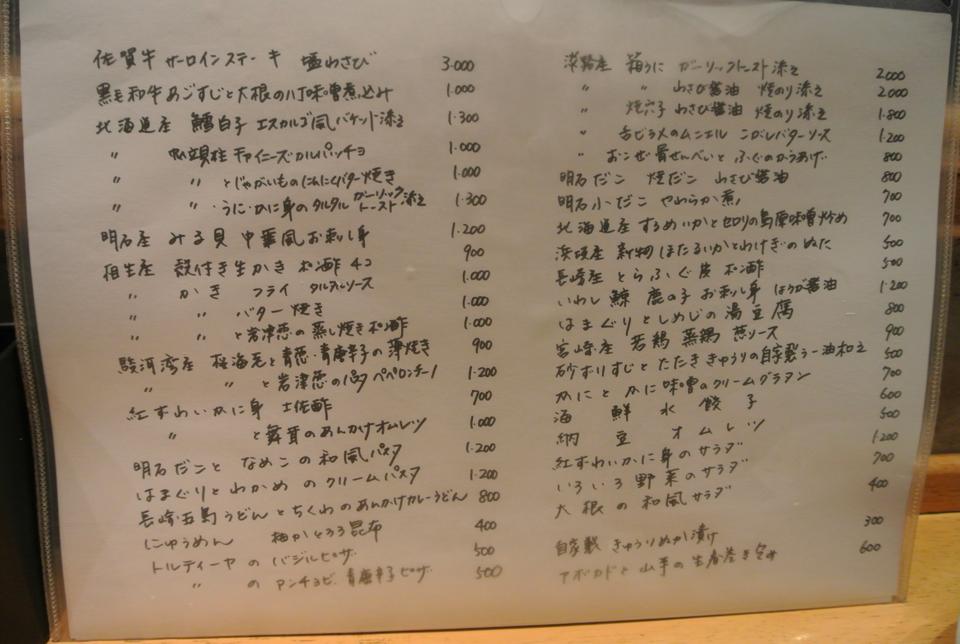 佐賀牛 サーロインステーキ 塩わさび 3.000
黒毛和牛あごすじと大根の八丁味噌煮込み 1.000
北海道産 鱈白子 エスカルゴ風バケット添え 1.300
〃 帆立貝柱 チャイニーズカルパッチョ 1.000
〃 〃 とじゃがいものにんにくバター焼き 1.000
〃 〃 ・うに・かに身のタルタル ガーリックトースト添え 1.300
明石産 みる貝 中華風お刺し身 1.200
相生産 殻付き生かき ポン酢 4コ 900
〃 かき フライ タルタルソース 1.000
〃 〃 バター焼き 1.000
〃 〃 と岩津葱の蒸し焼きポン酢 1.000
駿河湾産 桜海老と青葱・青唐辛子の薄焼き 900
〃 〃 と岩津葱のパスタ ペペロンチーノ 1.200
紅ずわいかに身 土佐酢 700
〃 と舞茸のあんかけオムレツ 1.000
明石だこと なめこの和風パスタ 1.200
はまぐりとわかめ のクリームパスタ 1.200
長崎五島うどんとちくわのあんかけカレーうどん 800
にゅうめん 梅かとろろ昆布 400
トルティーヤの バジルピザ 500
〃 の アンチョビ、青唐辛子ピザ 500
淡路産 箱うに ガーリックトースト添え 2.000
〃 〃 わさび醤油 焼のり添え 2.000
〃 焼穴子 わさび醤油 焼のり添え 1.800
〃 舌ビラメのムニエル こがしバターソース 1.200
〃 おこぜ骨せんべいと ふぐのからあげ 800
明石だこ 焼だこ わさび醤油 800
明石小だこ やわらか煮 700
北海道産 するめいかとセロリの島原味噌炒め 700
浜坂産 新物ほたるいかとわけぎのぬた 500
長崎産 とらふぐ皮 ポン酢 500
いわし鯨 鹿の子 お刺し身 しょうが醤油 1.200
はまぐりとしめじの湯豆腐 800
宮崎産 若鶏 蒸鶏 葱ソース 900
砂ずりすじと たたききゅうりの自家製ラー油和え 500
かにと かに味噌のクリームグラタン 700
海鮮水餃子 600
納豆オムレツ 500
紅ずわいかに身のサラダ 1.200
いろいろ野菜のサラダ 700
大根の和風サラダ 400
自家製 きゅうりぬか漬け 300
アボカドと山芋の生春巻き 600